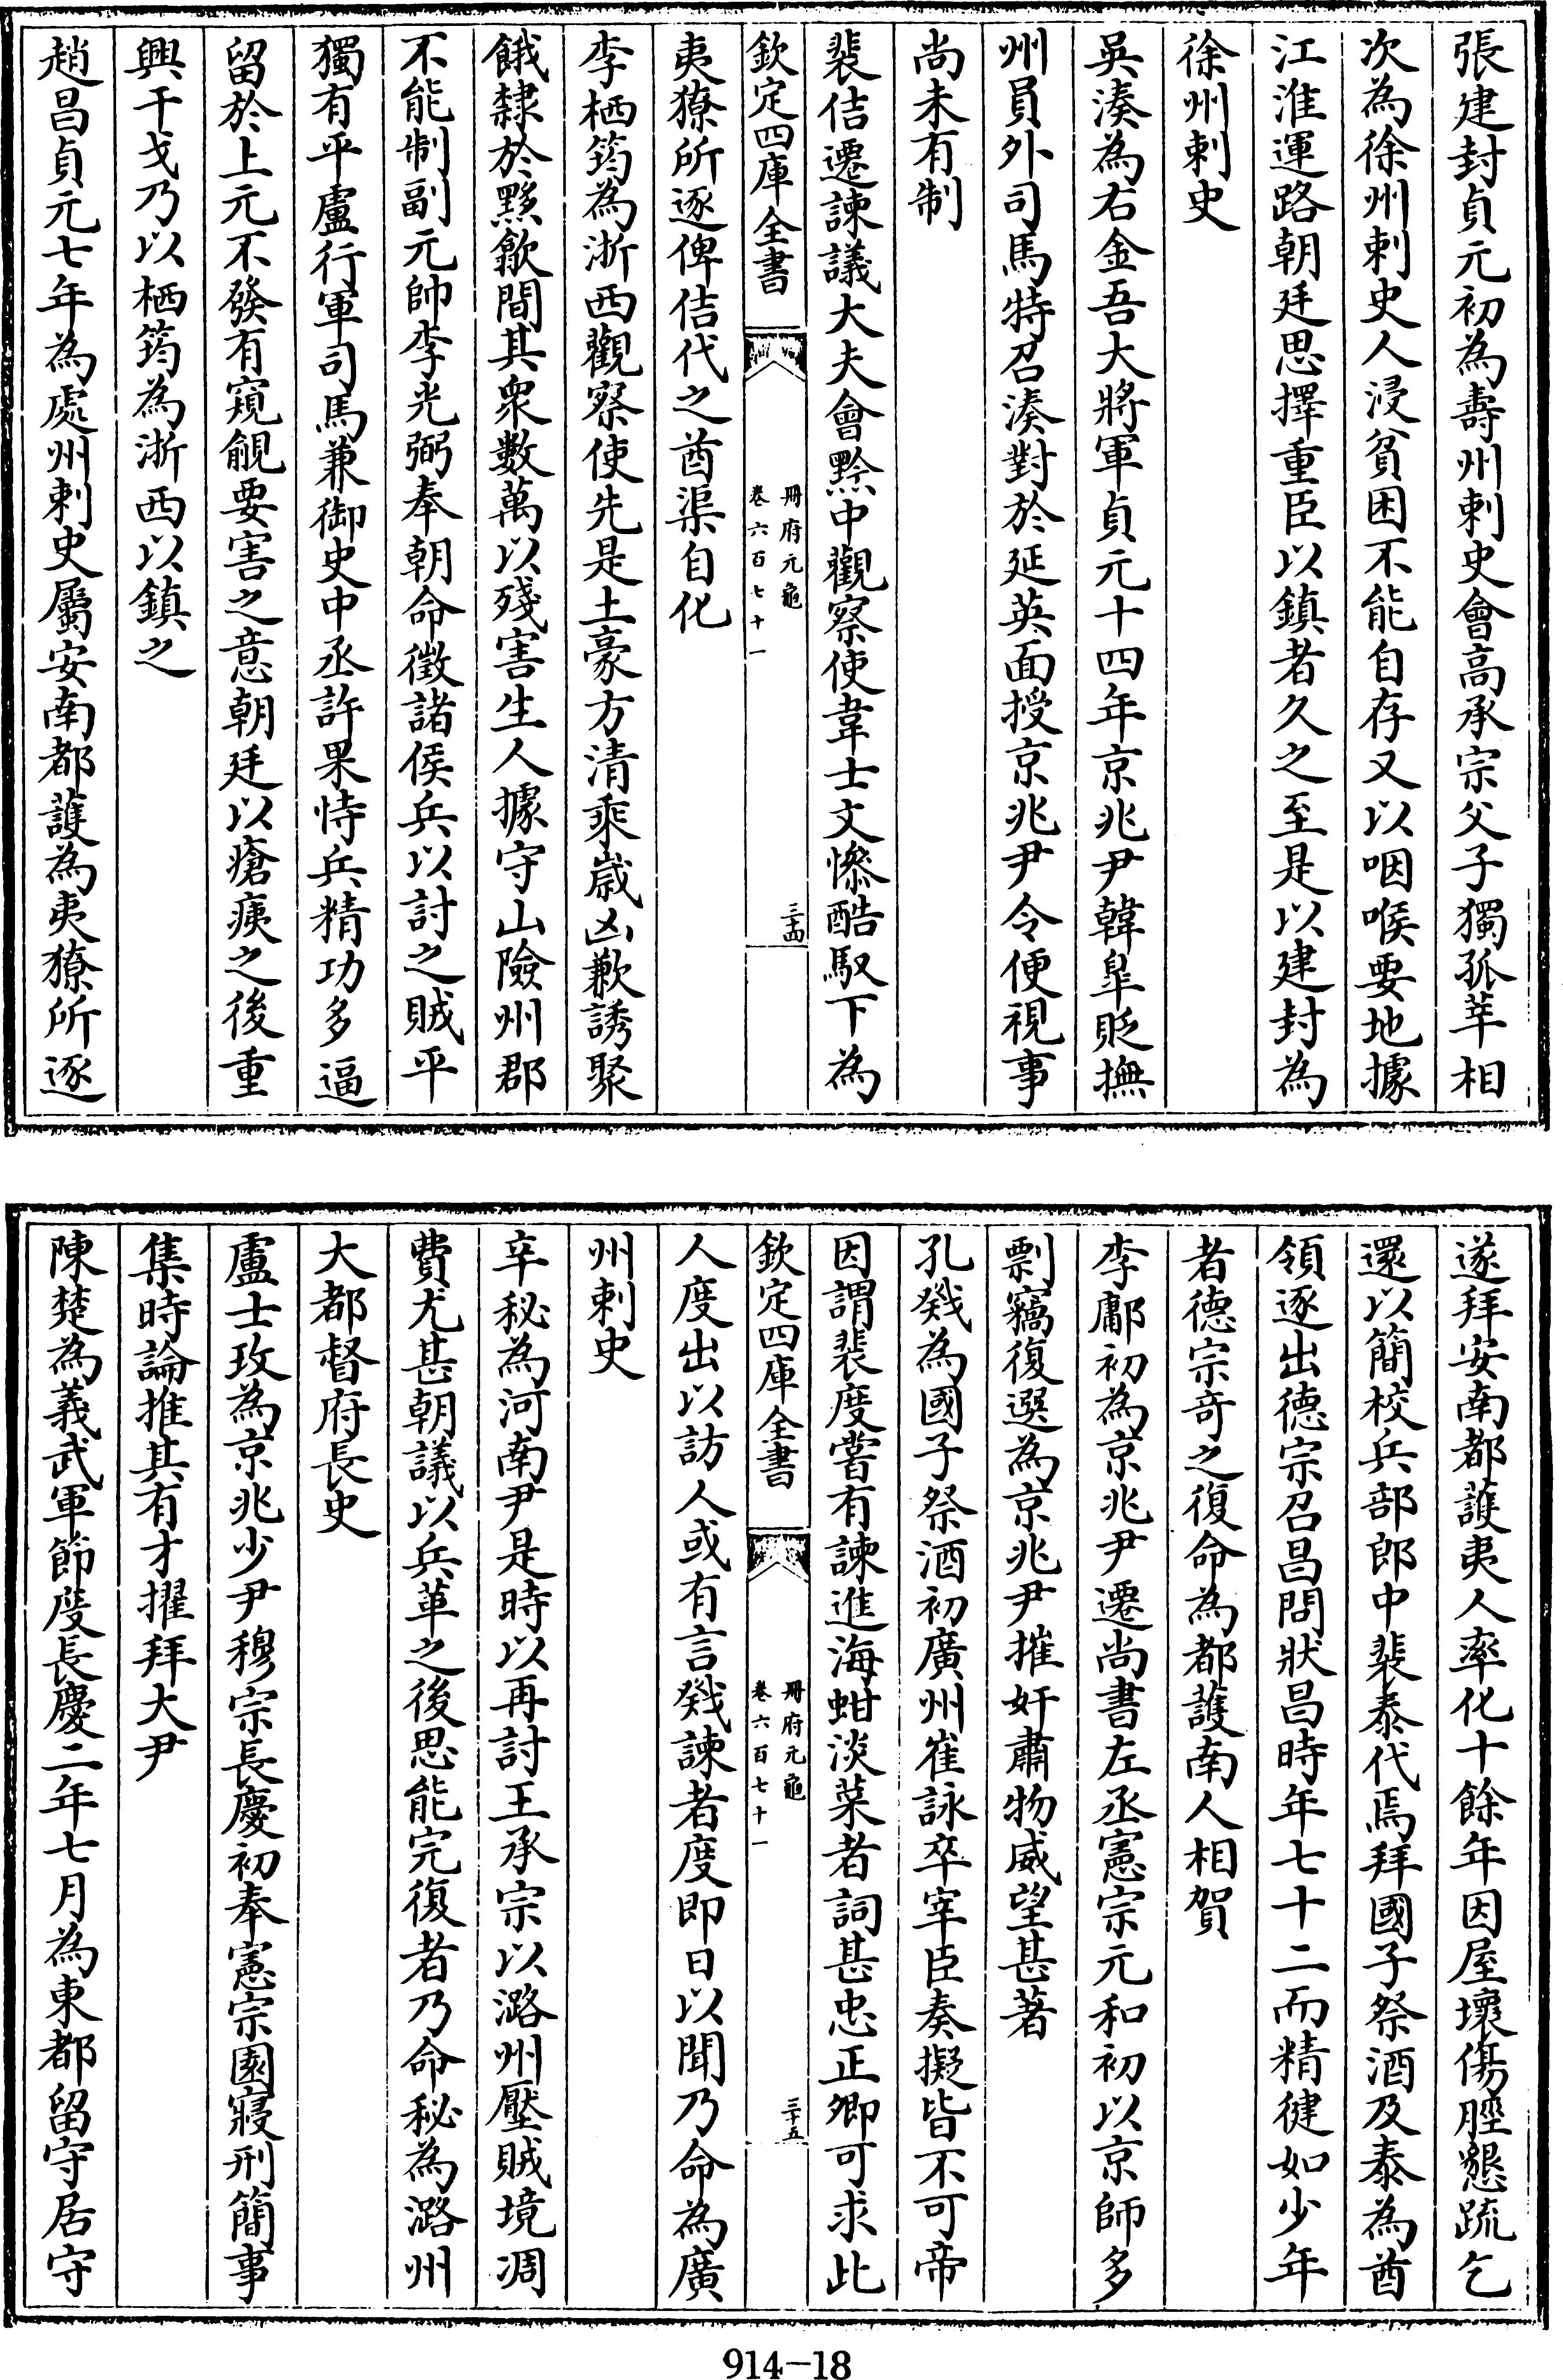 張建封貞元初為壽州刺史會高承宗父子獨孤莘相
次為徐州刺史人浸貧困不能自存又以咽喉要地據
江淮運路朝廷思擇重臣以鎮者久之至是以建封為
徐州刺史
吳湊為右金吾大將軍貞元十四年京兆尹韓臯貶撫
州員外司馬特召湊對於延英面授京兆尹令便視事
尚未有制
裴佶遷諫議大夫會黔中觀察使韋士文慘酷馭下為
欽定四庫全書
冊府元龜
卷六百七十一
三十四
夷獠所逐俾佶代之酋渠自化
李栖筠為浙西觀察使先是土豪方清乘歲凶歉誘聚
餓隸於黟歙間其衆數萬以殘害生人據守山險州郡
不能制副元帥李光弼奉朝命徵諸侯兵以討之賊平
獨有平盧行軍司馬兼御史中丞許果恃兵精功多逼
留於上元不發有窺覦要害之意朝廷以瘡痍之後重
興干戈乃以栖筠為浙西以鎮之
趙昌貞元七年為處州刺史屬安南都護為夷獠所逐
遂拜安南都護夷人率化十餘年因屋壞傷脛懇疏乞
還以簡校兵部郎中裴泰代焉拜國子祭酒及泰為酋
領逐出德宗召昌問狀昌時年七十二而精健如少年
者德宗奇之復命為都護南人相賀
李鄘初為京兆尹遷尚書左丞憲宗元和初以京師多
剽竊復選為京兆尹摧奸肅物威望甚著
孔戣為國子祭酒初廣州崔詠卒宰臣奏擬皆不可帝
因謂裴度嘗有諫進海蚶淡菜者詞甚忠正卿可求此
欽定四庫全書
冊府元龜
卷六百七十一
三十五
人度出以訪人或有言戣諫者度即日以聞乃命為廣
州刺史
辛秘為河南尹是時以再討王承宗以潞州壓賊境凋
費尤甚朝議以兵革之後思能完復者乃命秘為潞州
大都督府長史
盧士玫為京兆少尹穆宗長慶初奉憲宗園寢刑簡事
集時論推其有才擢拜大尹
陳楚為義武軍節度長慶二年七月為東都留守居守
914-18